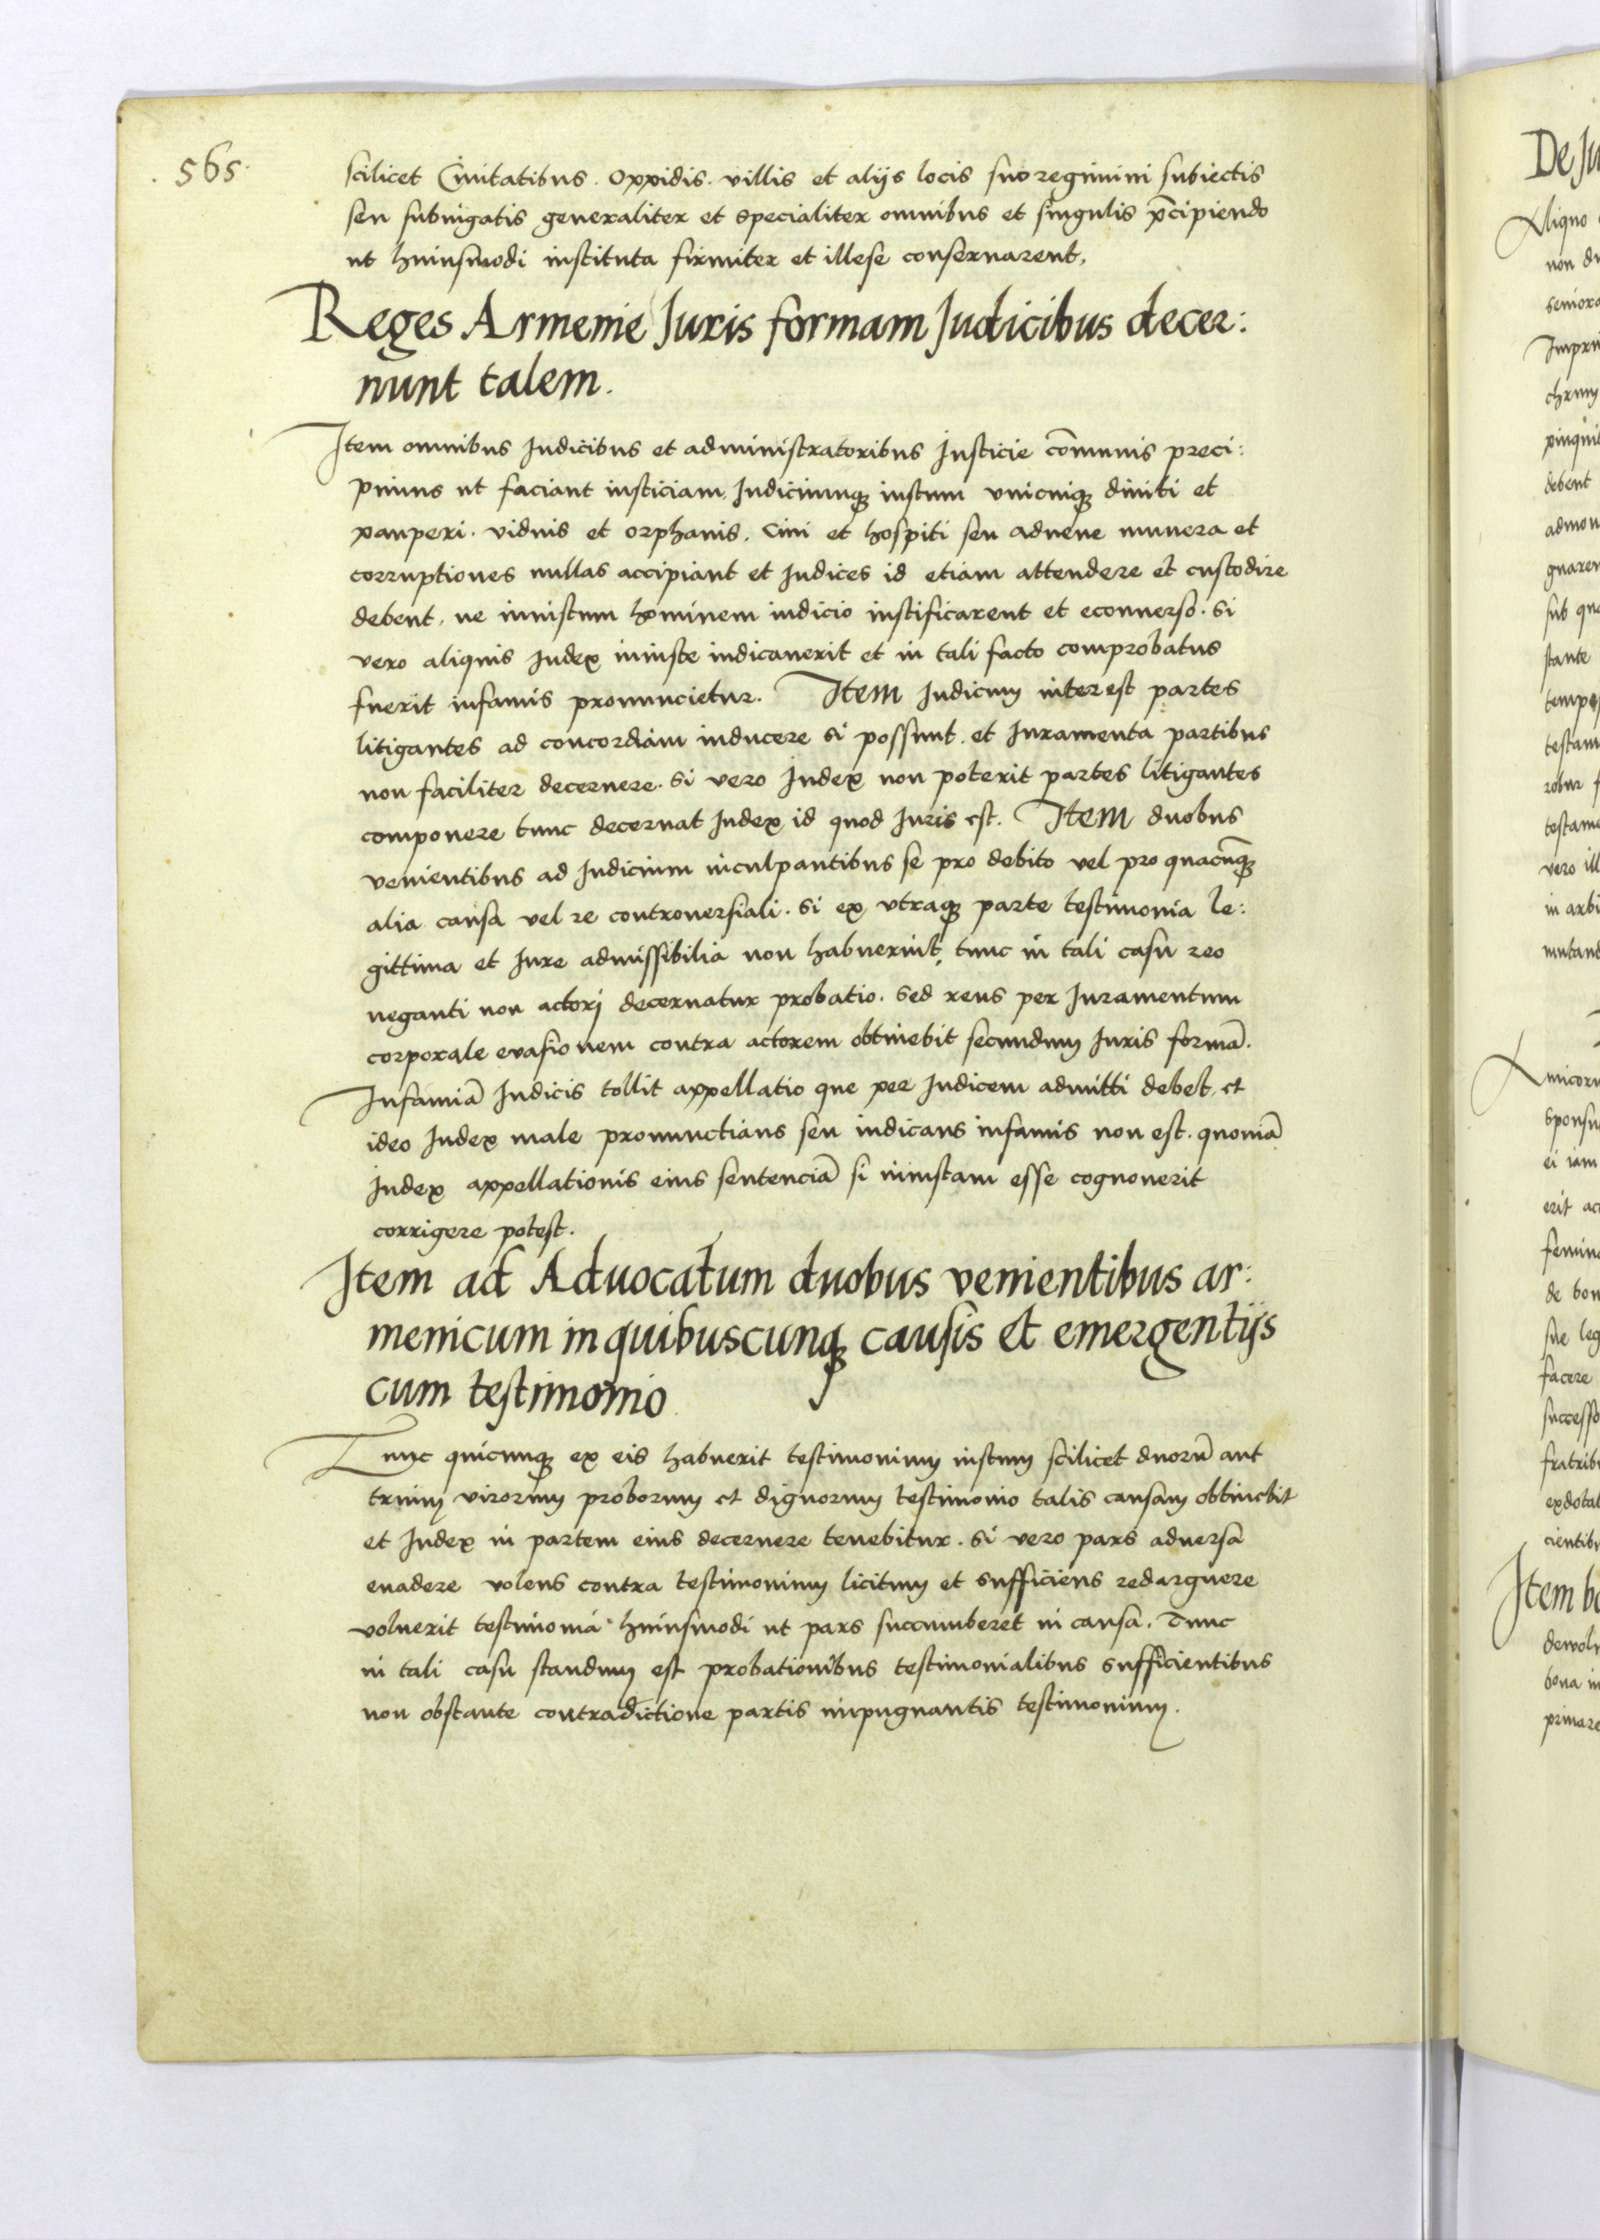 565
scilicet Ciuitatibus. Oppidis. villis et alijs locis suo regimini subiectis
seu subiugatis generaliter et specialiter omnibus et singulis p̄cipiendo
ut huiusmodi instituta firmiter et illese conseruarent.
Reges Armenie Juris formam Judicibus decer:
nunt talem.
Item omnibus Judicibus et administratoribus Justicie cōmunis preci:
pimus ut faciant iusticiam, Judiciumqꝫ iustum unicuiqꝫ diuiti et
pauperi. viduis et orphanis. Ciui et hospiti seu aduene munera et
corruptiones nullas accipiant et Judices id etiam attendere et custodire
debent. ne iniustum hominem iudicio iustificarent et econuerso. Si
vero aliquis Judex iniuste iudicauerit et in tali facto comprobatus
fuerit infamis pronuncietur. Item Judicum interest partes
litigantes ad concordiam inducere si possunt. et Juramenta partibus
non faciliter decernere. Si vero Judex non poterit partes litigantes
componere tunc decernat Judex id quod Juris est. Item duobus
venientibus ad Judicium inculpantibus se pro debito vel pro quacūqꝫ
alia causa vel re controuersiali. Si ex utraqꝫ parte testimonia le:
gittima et Jure admissibilia non habuerint, tunc in tali casu reo
neganti non actori decernatur probatio. Sed reus per Juramentum
corporale evasionem contra actorem obtinebit secundum Juris formā.
Infamiā Judicis tollit appellatio que per Judicem admitti debet, et
ideo Judex male pronunctians seu iudicans infamis non est. quoniā
Judex appellationis eius sentenciā si iniustam esse cognouerit
corrigere potest.
Item ad Aduocatum duobus venientibus ar:
menicum in quibuscunqꝫ causis et emergentijs
cum testimonio
Tunc quicunqꝫ ex eis habuerit testimonium iustum scilicet duorū aut
trium virorum proborum et dignorum testimonio talis causam obtinebit
et Judex in partem eius decernere tenebitur. Si vero pars aduersa
euadere volens contra testimonium licitum et sufficiens redarguere
voluerit testimonia huiusmodi ut pars succumberet in causa. Tunc
in tali casu standum est probationibus testimonialibus sufficientibus
non obstante contradictione partis impugnantis testimonium.
De Ju
Aliquo
non du
seniora
Imprim
debent
sub qu
stante
testam
vero ill
in arbi
Amicoru
sponsu
ei iam
erit ac
femin
de bon
sue leg
facere
successo
fratrib
exdotat
cientib
Item bo
deuolu
bona in